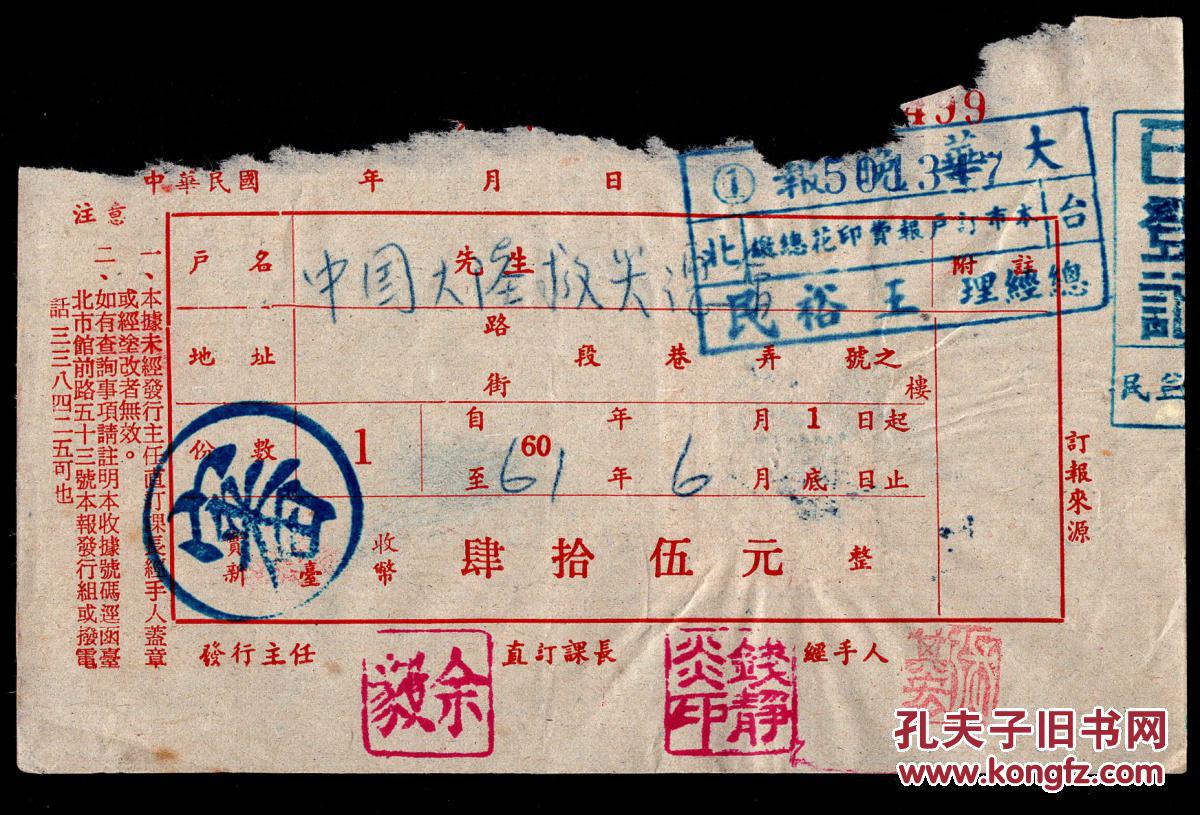 499
中華民國 年 月 日
大華晚報 ① 501347
台北 本市訂戶報費印花總繳
總經理 王裕民
已登記
注意
一、本據未經發行主任直訂課長經手人蓋章
或經塗改者無效。
二、如有查詢事項請註明本收據號碼逕函臺
北市館前路五十三號本報發行組或撥電
話三三八四二五可也
戶名 中国大陸救災 先生
附註
地址 路街 段 巷 弄 號之 樓
份數 1 自 60 年 月 1 日起
至 61 年 6 月底 日止
實收新臺幣 肆拾伍元整
訂報來源
發行主任 直訂課長 經手人
余毅
錢靜炎印
孔夫子旧书网
www.kongfz.com